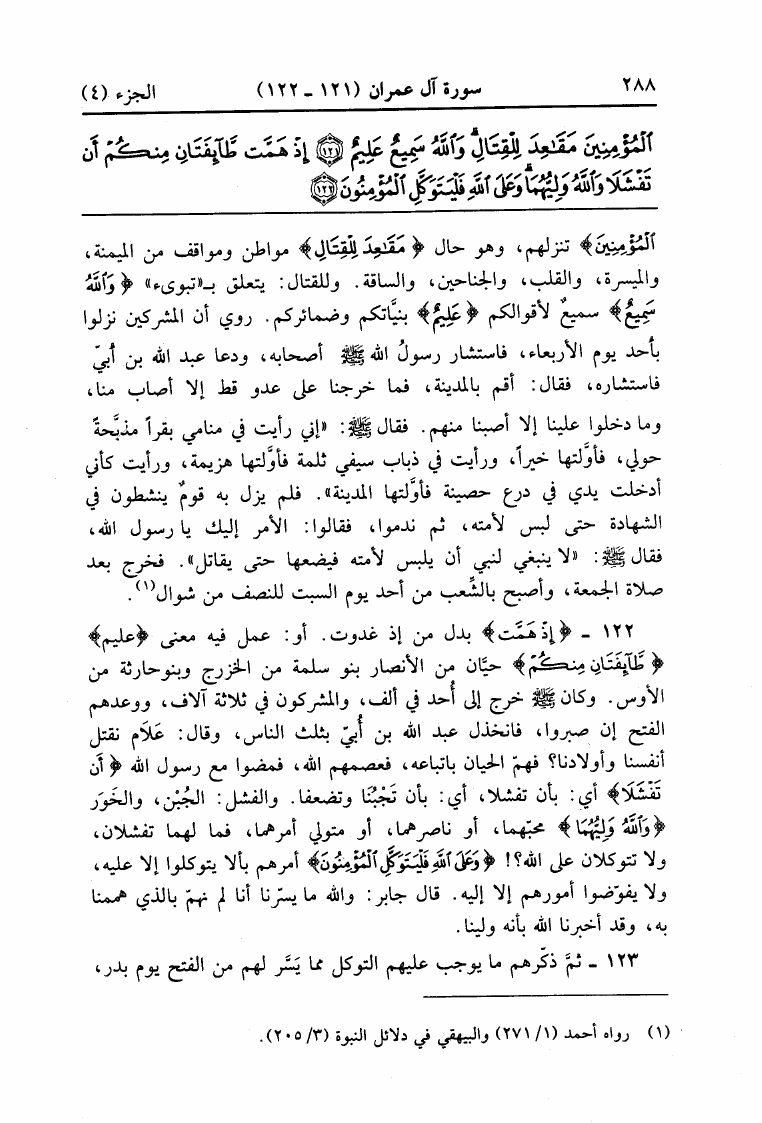 ٢٨٨ سورة آل عمران (١٢١ ـ ١٢٢) الجزء (٤)
الْمُؤْمِنِينَ مَقَاعِدَ لِلْقِتَالِ وَاللَّهُ سَمِيعٌ عَلِيمٌ ﴿١٢١﴾ إِذْ هَمَّت طَّآئِفَتَانِ مِنكُمْ أَن
تَفْشَلَا وَاللَّهُ وَلِيُّهُمَا وَعَلَى اللَّهِ فَلْيَتَوَكَّلِ الْمُؤْمِنُونَ ﴿١٢٢﴾
الْمُؤْمِنِينَ﴾ تنزلهم، وهو حال ﴿مَقَاعِدَ لِلْقِتَالِ﴾ مواطن ومواقف من الميمنة،
والميسرة، والقلب، والجناحين، والساقة. وللقتال: يتعلق بـ«تبوىء» ﴿وَاللَّهُ
سَمِيعٌ﴾ سميعٌ لأقوالكم ﴿عَلِيمٌ﴾ بنيَّاتكم وضمائركم. روي أن المشركين نزلوا
بأحد يوم الأربعاء، فاستشار رسولُ الله ﷺ أصحابه، ودعا عبد الله بن أُبيّ
فاستشاره، فقال: أقم بالمدينة، فما خرجنا على عدو قط إلا أصاب منا،
وما دخلوا علينا إلا أصبنا منهم. فقال ﷺ: «إني رأيت في منامي بقراً مذبَّحةً
حولي، فأوَّلتها خيراً، ورأيت في ذباب سيفي ثلمة فأوَّلتها هزيمة، ورأيت كأني
أدخلت يدي في درع حصينة فأوَّلتها المدينة». فلم يزل به قومٌ ينشطون في
الشهادة حتى لبس لأمته، ثم ندموا، فقالوا: الأمر إليك يا رسول الله،
فقال ﷺ: «لا ينبغي لنبي أن يلبس لأمته فيضعها حتى يقاتل». فخرج بعد
صلاة الجمعة، وأصبح بالشِّعب من أحد يوم السبت للنصف من شوال(١).
١٢٢ ـ ﴿إِذْ هَمَّت﴾ بدل من إذ غدوت. أو: عمل فيه معنى ﴿عليم﴾
﴿طَّآئِفَتَانِ مِنكُمْ﴾ حيَّان من الأنصار بنو سلمة من الخزرج وبنو حارثة من
الأوس. وكان ﷺ خرج إلى أُحد في ألف، والمشركون في ثلاثة آلاف، ووعدهم
الفتح إن صبروا، فانخذل عبد الله بن أُبيّ بثلث الناس، وقال: عَلَام نقتل
أنفسنا وأولادنا؟ فهمّ الحيان باتباعه، فعصمهم الله، فمضوا مع رسول الله ﴿أَن
تَفْشَلَا﴾ أي: بأن تفشلا، أي: بأن تَجْبُنَا وتضعفا. والفشل: الجُبْن، والخَوَر
﴿وَاللَّهُ وَلِيُّهُمَا﴾ محبّهما، أو ناصرهما، أو متولي أمرهما، فما لهما تفشلان،
ولا تتوكلان على الله؟! ﴿وَعَلَى اللَّهِ فَلْيَتَوَكَّلِ الْمُؤْمِنُونَ﴾ أمرهم بألا يتوكلوا إلا عليه،
ولا يفوّضوا أمورهم إلا إليه. قال جابر: والله ما يسرّنا أنا لم نهمّ بالذي هممنا
به، وقد أخبرنا الله بأنه ولينا.
١٢٣ ـ ثمَّ ذكّرهم ما يوجب عليهم التوكل مما يَسَّر لهم من الفتح يوم بدر،
(١) رواه أحمد (١/ ٢٧١) والبيهقي في دلائل النبوة (٣/ ٢٠٥).